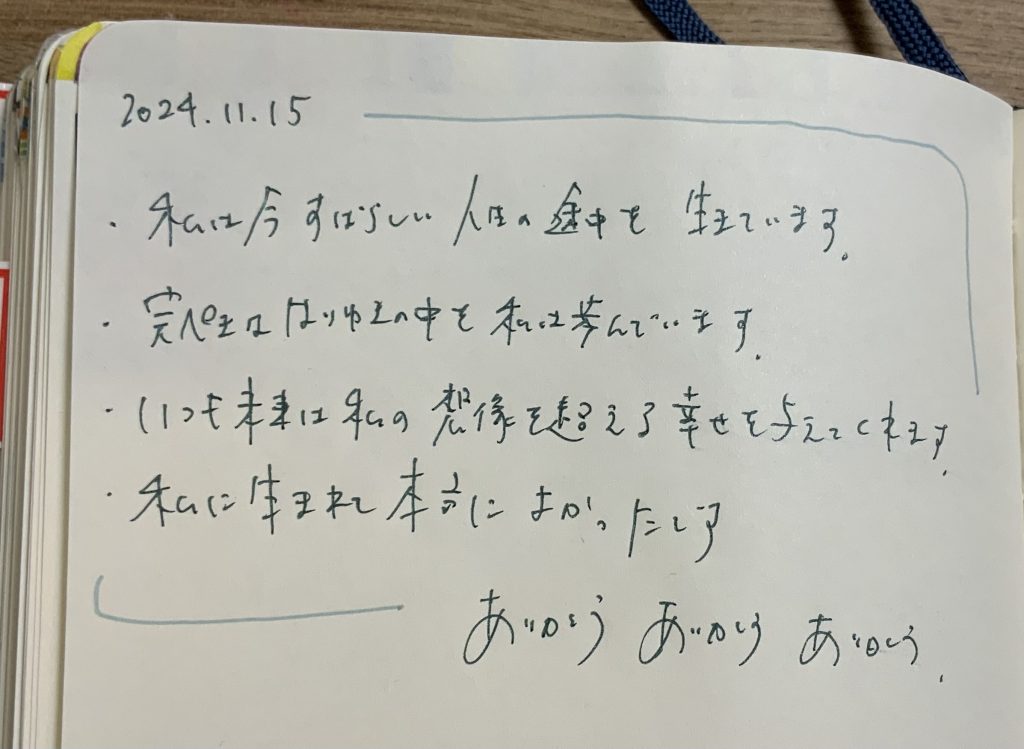 2024.11.15
・私は今すばらしい人生の途中を生きています.
・完ペきなはりゆきの中を私は歩んでいます.
・いつも未来は私の想像を超える幸せを与えてくれます.
・私に生まれて本当によかったです
ありがとう ありがとう ありがとう.